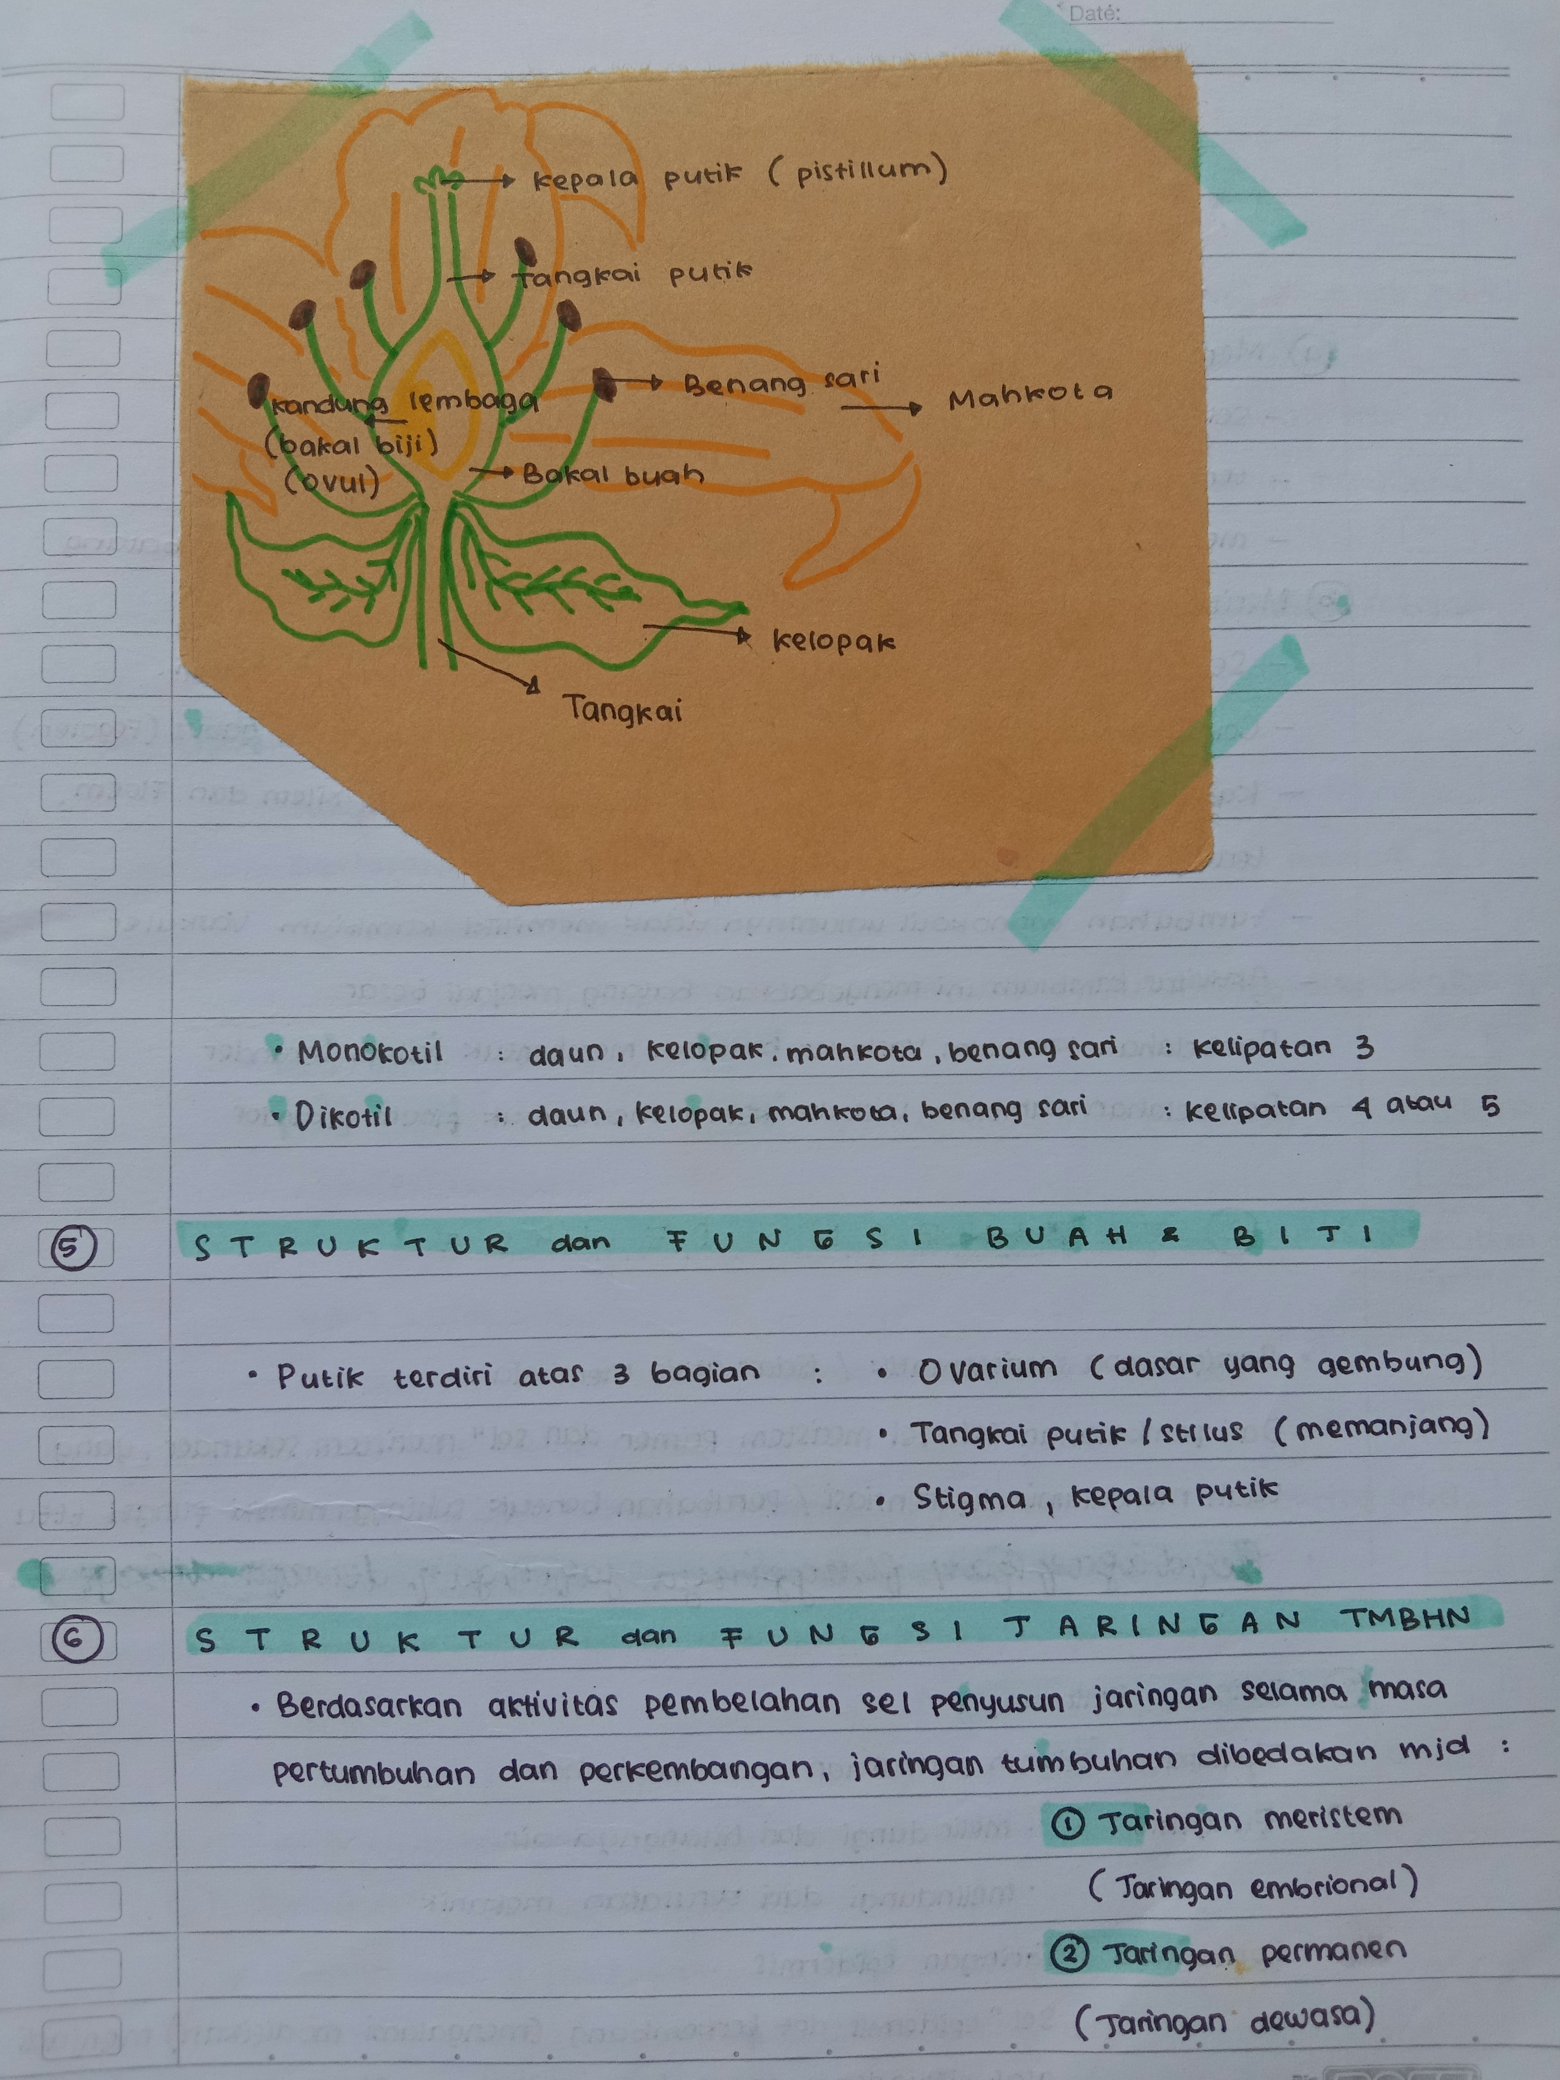 Date:
kepala putik (pistillum)
Tangkai putik
Benang sari
Mahkota
kandung lembaga
(bakal biji)
(ovul)
Bakal buah
kelopak
Tangkai
• Monokotil : daun, kelopak, mahkota, benang sari : kelipatan 3
• Dikotil : daun, kelopak, mahkota, benang sari : kelipatan 4 atau 5
5 STRUKTUR dan FUNGSI BUAH & BIJI
• Putik terdiri atas 3 bagian : • Ovarium (dasar yang gembung)
• Tangkai putik / stilus (memanjang)
• Stigma, kepala putik
6 STRUKTUR dan FUNGSI JARINGAN TMBHN
• Berdasarkan aktivitas pembelahan sel penyusun jaringan selama masa
pertumbuhan dan perkembangan, jaringan tumbuhan dibedakan mjd :
① Jaringan meristem
(Jaringan embrional)
② Jaringan permanen
(Jaringan dewasa)